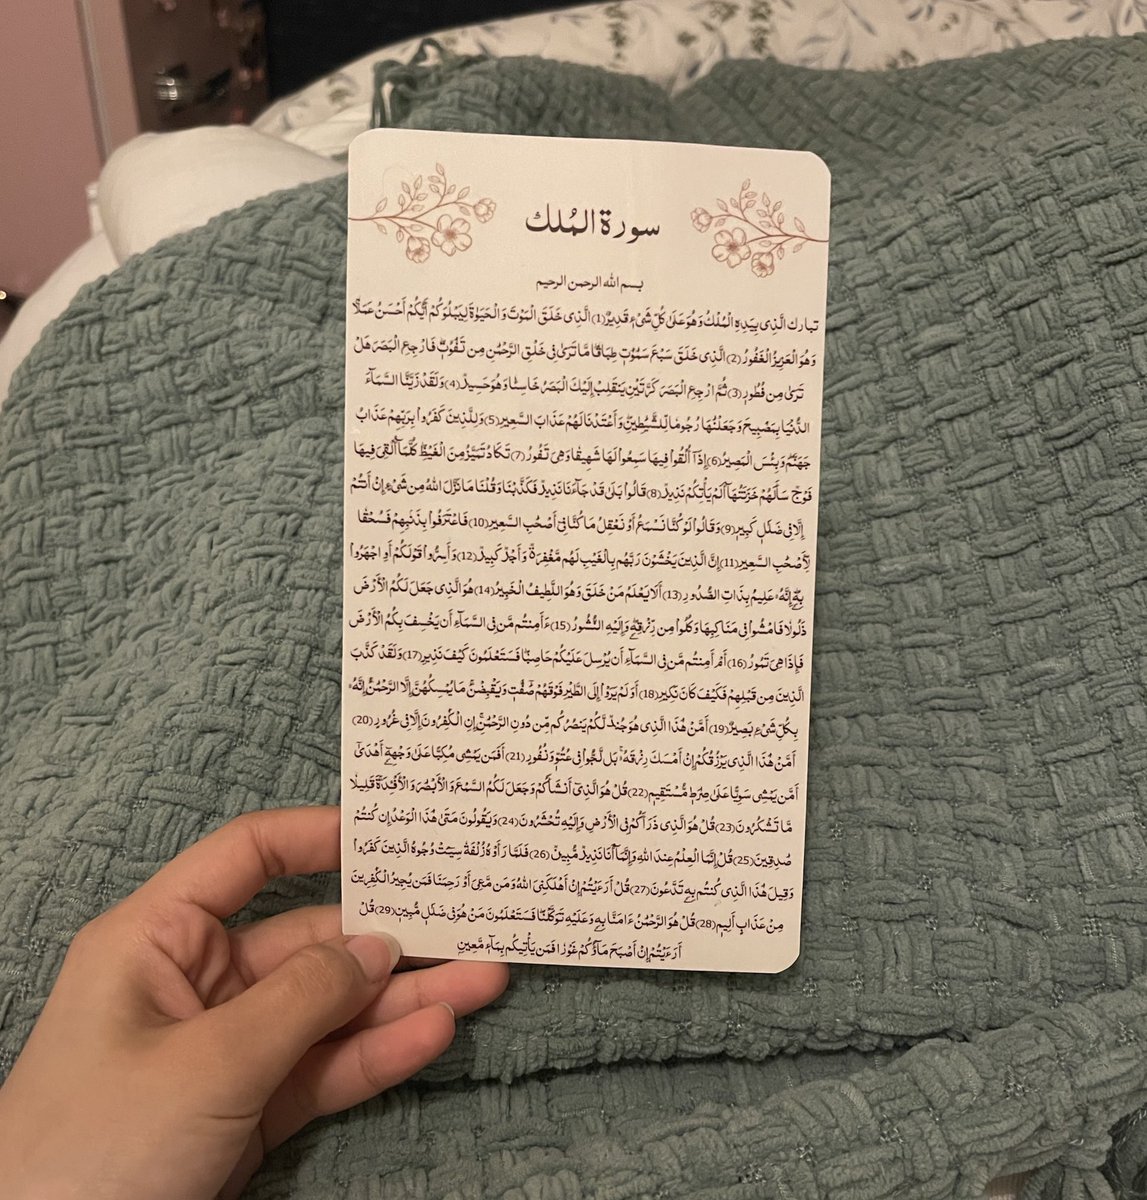 سورة المُلك
بسم الله الرحمن الرحيم
تبارك الَّذِى بِيَدِهِ الْمُلْكُ وَهُوَ عَلَىٰ كُلِّ شَىْءٍ قَدِيرٌ(1) الَّذِى خَلَقَ الْمَوْتَ وَالْحَيَوٰةَ لِيَبْلُوَكُمْ أَيُّكُمْ أَحْسَنُ عَمَلًا
وَهُوَ الْعَزِيزُ الْغَفُورُ(2) الَّذِى خَلَقَ سَبْعَ سَمَٰوَٰتٍ طِبَاقًا مَّا تَرَىٰ فِى خَلْقِ الرَّحْمَٰنِ مِن تَفَٰوُتٍ فَارْجِعِ الْبَصَرَ هَلْ
تَرَىٰ مِن فُطُورٍ(3) ثُمَّ ارْجِعِ الْبَصَرَ كَرَّتَيْنِ يَنقَلِبْ إِلَيْكَ الْبَصَرُ خَاسِئًا وَهُوَ حَسِيرٌ(4) وَلَقَدْ زَيَّنَّا السَّمَآءَ
الدُّنْيَا بِمَصَٰبِيحَ وَجَعَلْنَٰهَا رُجُومًا لِّلشَّيَٰطِينِ وَأَعْتَدْنَا لَهُمْ عَذَابَ السَّعِيرِ(5) وَلِلَّذِينَ كَفَرُوا۟ بِرَبِّهِمْ عَذَابُ
جَهَنَّمَ وَبِئْسَ الْمَصِيرُ(6) إِذَآ أُلْقُوا۟ فِيهَا سَمِعُوا۟ لَهَا شَهِيقًا وَهِىَ تَفُورُ(7) تَكَادُ تَمَيَّزُ مِنَ الْغَيْظِ كُلَّمَآ أُلْقِىَ فِيهَا
فَوْجٌ سَأَلَهُمْ خَزَنَتُهَآ أَلَمْ يَأْتِكُمْ نَذِيرٌ(8) قَالُوا۟ بَلَىٰ قَدْ جَآءَنَا نَذِيرٌ فَكَذَّبْنَا وَقُلْنَا مَا نَزَّلَ اللَّهُ مِن شَىْءٍ إِنْ أَنتُمْ
إِلَّا فِى ضَلَٰلٍ كَبِيرٍ(9) وَقَالُوا۟ لَوْ كُنَّا نَسْمَعُ أَوْ نَعْقِلُ مَا كُنَّا فِىٓ أَصْحَٰبِ السَّعِيرِ(10) فَاعْتَرَفُوا۟ بِذَنۢبِهِمْ فَسُحْقًا
لِّأَصْحَٰبِ السَّعِيرِ(11) إِنَّ الَّذِينَ يَخْشَوْنَ رَبَّهُم بِالْغَيْبِ لَهُم مَّغْفِرَةٌ وَأَجْرٌ كَبِيرٌ(12) وَأَسِرُّوا۟ قَوْلَكُمْ أَوِ اجْهَرُوا۟
بِهِۦٓ إِنَّهُۥ عَلِيمٌۢ بِذَاتِ الصُّدُورِ(13) أَلَا يَعْلَمُ مَنْ خَلَقَ وَهُوَ اللَّطِيفُ الْخَبِيرُ(14) هُوَ الَّذِى جَعَلَ لَكُمُ الْأَرْضَ
ذَلُولًا فَامْشُوا۟ فِى مَنَاكِبِهَا وَكُلُوا۟ مِن رِّزْقِهِۦ وَإِلَيْهِ النُّشُورُ(15) ءَأَمِنتُم مَّن فِى السَّمَآءِ أَن يَخْسِفَ بِكُمُ الْأَرْضَ
فَإِذَا هِىَ تَمُورُ(16) أَمْ أَمِنتُم مَّن فِى السَّمَآءِ أَن يُرْسِلَ عَلَيْكُمْ حَاصِبًا فَسَتَعْلَمُونَ كَيْفَ نَذِيرِ(17) وَلَقَدْ كَذَّبَ
الَّذِينَ مِن قَبْلِهِمْ فَكَيْفَ كَانَ نَكِيرِ(18) أَوَلَمْ يَرَوْا۟ إِلَى الطَّيْرِ فَوْقَهُمْ صَٰٓفَّٰتٍ وَيَقْبِضْنَ مَا يُمْسِكُهُنَّ إِلَّا الرَّحْمَٰنُ إِنَّهُۥ
بِكُلِّ شَىْءٍۭ بَصِيرٌ(19) أَمَّنْ هَٰذَا الَّذِى هُوَ جُندٌ لَّكُمْ يَنصُرُكُم مِّن دُونِ الرَّحْمَٰنِ إِنِ الْكَٰفِرُونَ إِلَّا فِى غُرُورٍ(20)
أَمَّنْ هَٰذَا الَّذِى يَرْزُقُكُمْ إِنْ أَمْسَكَ رِزْقَهُۥ بَل لَّجُّوا۟ فِى عُتُوٍّ وَنُفُورٍ(21) أَفَمَن يَمْشِى مُكِبًّا عَلَىٰ وَجْهِهِۦٓ أَهْدَىٰٓ
أَمَّن يَمْشِى سَوِيًّا عَلَىٰ صِرَٰطٍ مُّسْتَقِيمٍ(22) قُلْ هُوَ الَّذِىٓ أَنشَأَكُمْ وَجَعَلَ لَكُمُ السَّمْعَ وَالْأَبْصَٰرَ وَالْأَفْـِٔدَةَ قَلِيلًا
مَّا تَشْكُرُونَ(23) قُلْ هُوَ الَّذِى ذَرَأَكُمْ فِى الْأَرْضِ وَإِلَيْهِ تُحْشَرُونَ(24) وَيَقُولُونَ مَتَىٰ هَٰذَا الْوَعْدُ إِن كُنتُمْ
صَٰدِقِينَ(25) قُلْ إِنَّمَا الْعِلْمُ عِندَ اللَّهِ وَإِنَّمَآ أَنَا۠ نَذِيرٌ مُّبِينٌ(26) فَلَمَّا رَأَوْهُ زُلْفَةً سِيٓـَٔتْ وُجُوهُ الَّذِينَ كَفَرُوا۟
وَقِيلَ هَٰذَا الَّذِى كُنتُم بِهِۦ تَدَّعُونَ(27) قُلْ أَرَءَيْتُمْ إِنْ أَهْلَكَنِىَ اللَّهُ وَمَن مَّعِىَ أَوْ رَحِمَنَا فَمَن يُجِيرُ الْكَٰفِرِينَ
مِنْ عَذَابٍ أَلِيمٍ(28) قُلْ هُوَ الرَّحْمَٰنُ ءَامَنَّا بِهِۦ وَعَلَيْهِ تَوَكَّلْنَا فَسَتَعْلَمُونَ مَنْ هُوَ فِى ضَلَٰلٍ مُّبِينٍ(29) قُلْ
أَرَءَيْتُمْ إِنْ أَصْبَحَ مَآؤُكُمْ غَوْرًا فَمَن يَأْتِيكُم بِمَآءٍ مَّعِينٍ